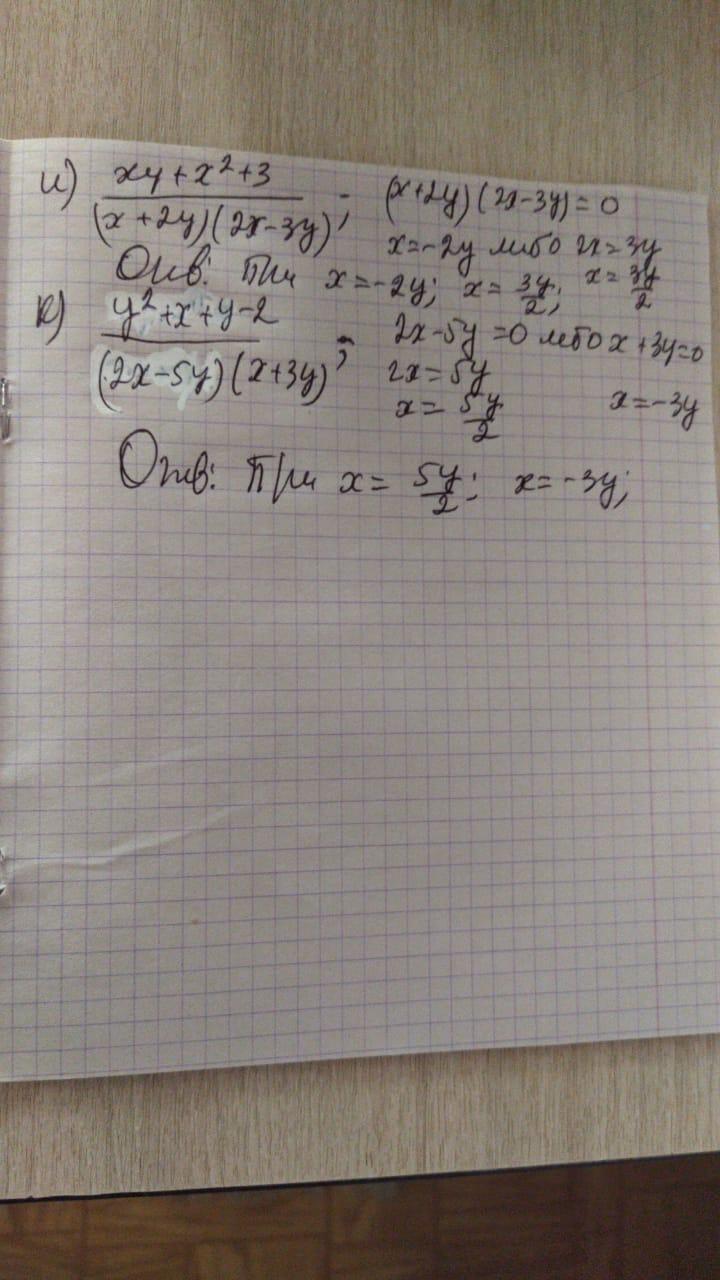 и) xy + x² + 3 / (x + 2y)(2x - 3y) ; (x+2y)(2x-3y) = 0
x = -2y либо 2x = 3y
Отв: При x = -2y; x = 3y/2; x = 3y/2
к) y² + x + y - 2 / (2x - 5y)(x + 3y) ; 2x - 5y = 0 либо x + 3y = 0
2x = 5y
x = 5y/2 x = -3y
Отв: При x = 5y/2; x = -3y;